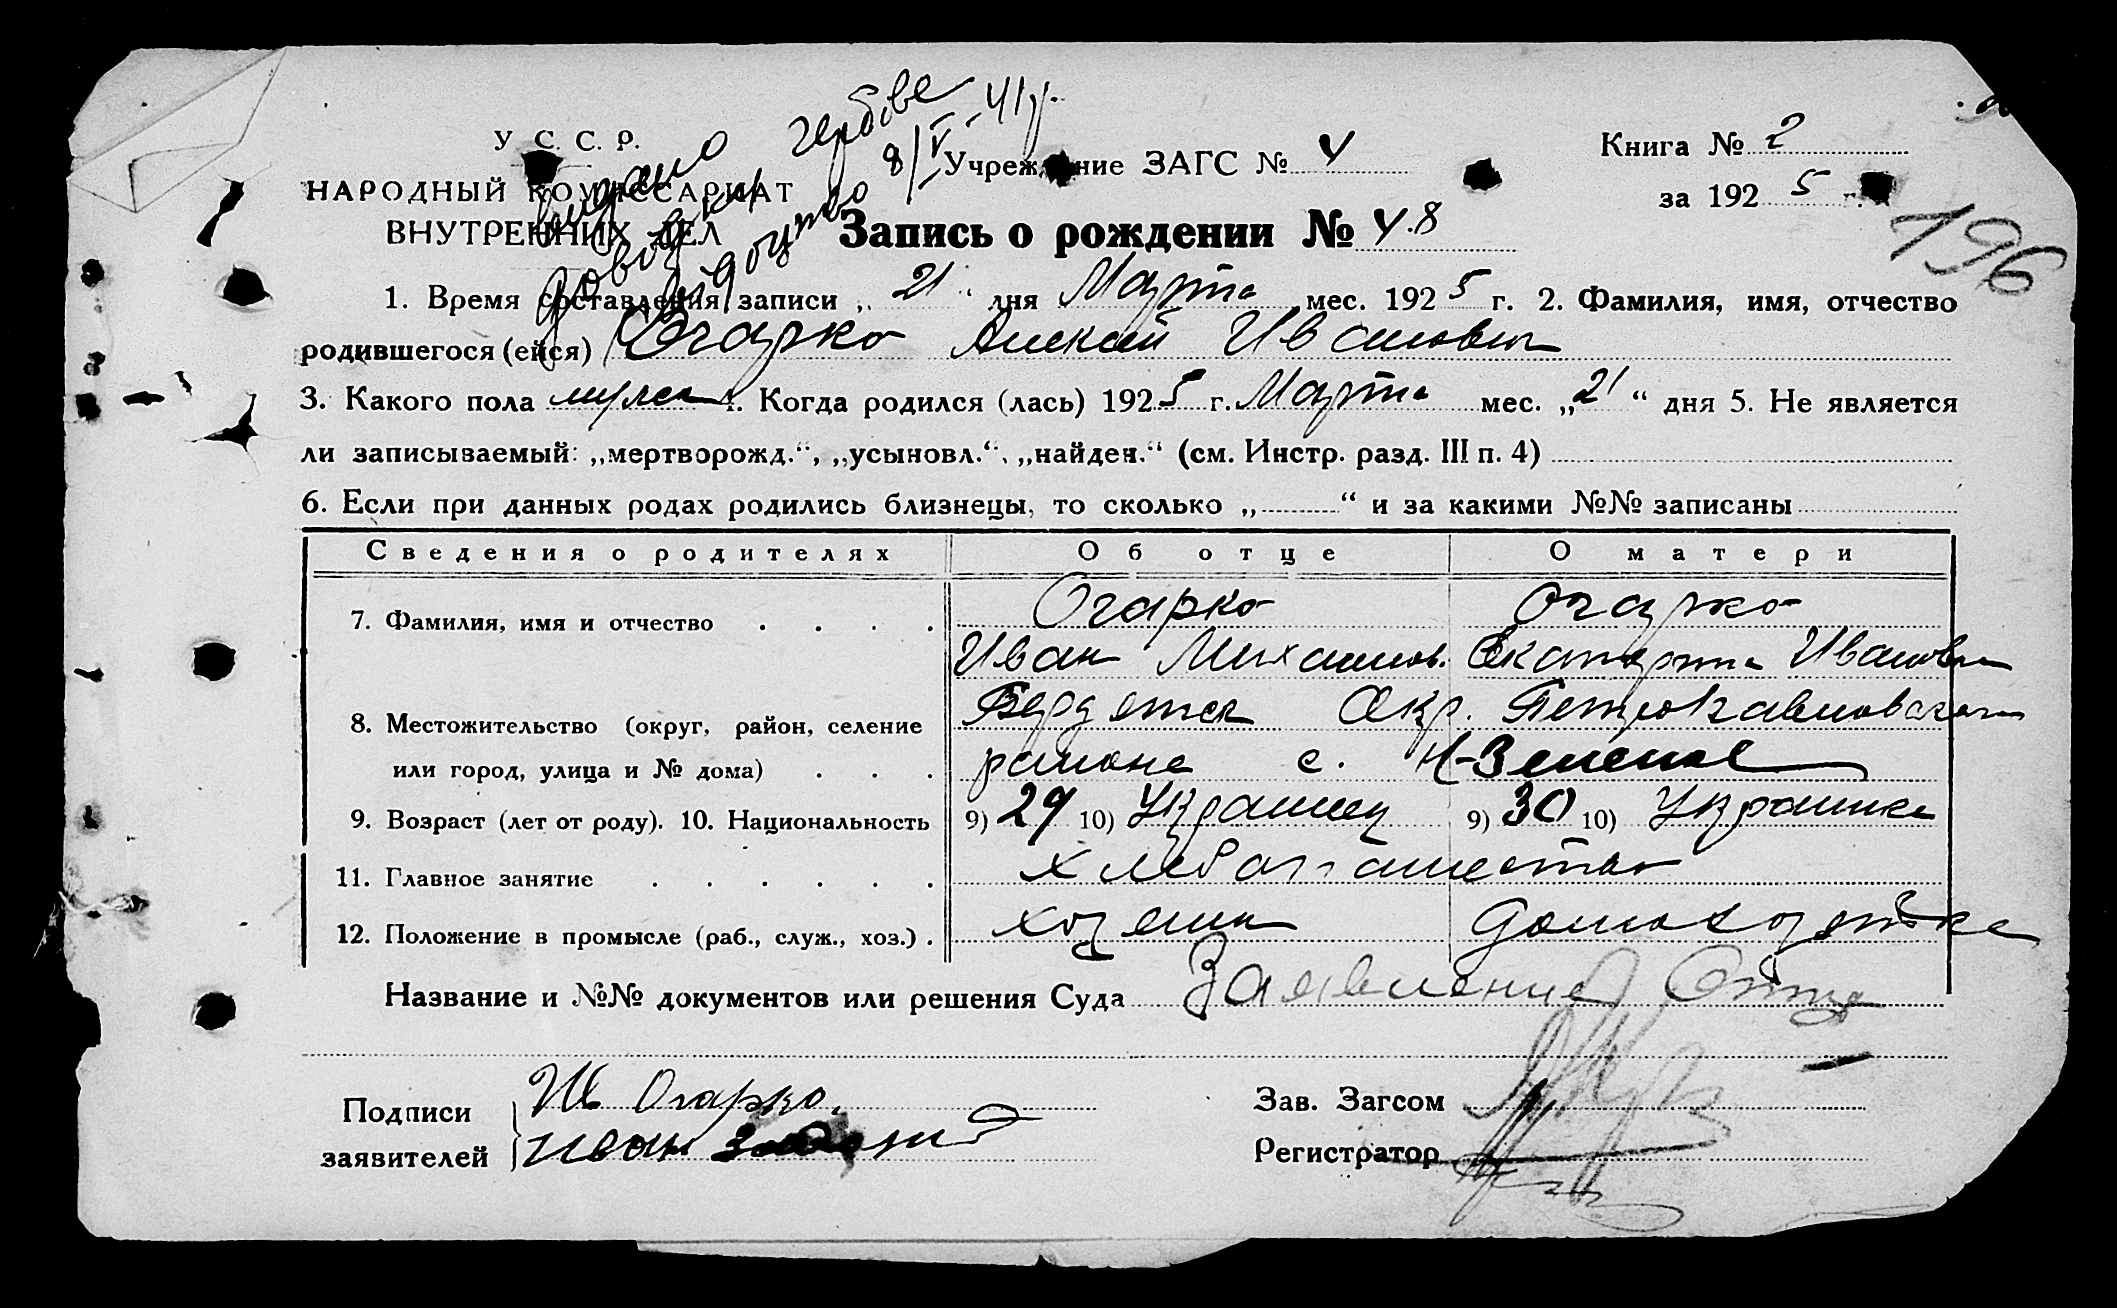 У С. С. Р.
НАРОДНЫЙ КОМИССАРИАТ
ВНУТРЕННИХ ДЕЛ
видано гербове 8/V-41р.
довідку
Учреждение ЗАГС № 4
Книга № 2
за 1925 г.
196
Запись о рождении № 48
1. Время составления записи „ 21 " дня Марта мес. 1925 г. 2. Фамилия, имя, отчество
родившегося (ейся) Огарко Алексей Иванович
3. Какого пола мужск 4. Когда родился (лась) 1925 г. Марта мес. „21 " дня 5. Не является
ли записываемый: „мертворожд.", „усыновл.", „найден." (см. Инстр. разд. III п. 4)
6. Если при данных родах родились близнецы, то сколько „ " и за какими №№ записаны
Сведения о родителях Об отце О матери
7. Фамилия, имя и отчество Огарко Огарко
Иван Михаилов. Екатерина Ивановна
8. Местожительство (округ, район, селение Бердянск Окр. Петропавловского
или город, улица и № дома) района с. Н-Зеленое
9. Возраст (лет от роду). 10. Национальность 9) 29 10) Украинец 9) 30 10) Украинка
11. Главное занятие хлебопашество
12. Положение в промысле (раб., служ., хоз.) хозеин домохозяйка
Название и №№ документов или решения Суда Заявление Отца
Подписи Огарко
заявителей Иван
Зав. Загсом
Регистратор